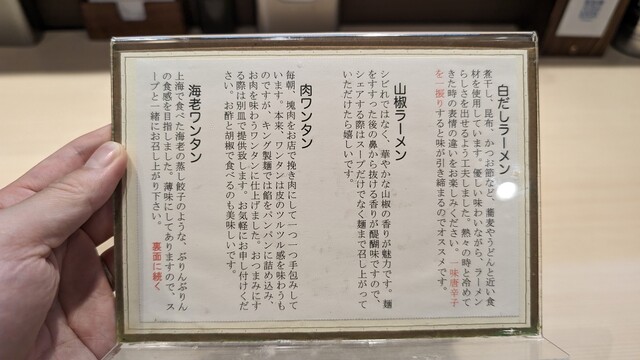 白だしラーメン
煮干し、昆布、かつお節など、蕎麦やうどんと近い食
材を使用しています。優しい味わいながら、ラーメン
らしさを出せるよう工夫しました。熱々の時と冷めて
きた時の表情の違いをお楽しみください。一味唐辛子
を一振りすると味が引き締まるのでオススメです。
山椒ラーメン
シビれではなく、華やかな山椒の香りが魅力です。麺
をすすった後の鼻から抜ける香りが醍醐味ですので、
シェアする際はスープだけでなく麺まで召し上がって
いただけたら嬉しいです。
肉ワンタン
毎朝、塊肉をお店で挽き肉にして一つ一つ手包みして
います。本来、ワンタンは皮のツルツル感を味わうも
のですが、キング製麺では餡をパンパンに詰め込み、
お肉を味わうワンタンに仕上げました。おつまみにす
る際は別皿で提供致します。お気軽にお申し付けくだ
さい。お酢と胡椒で食べるのも美味しいです。
海老ワンタン
上海で食べた海老の蒸し餃子のような、ぷりんぷりん
の食感を目指しました。薄味にしてありますので、ス
ープと一緒にお召し上がり下さい。 裏面に続く